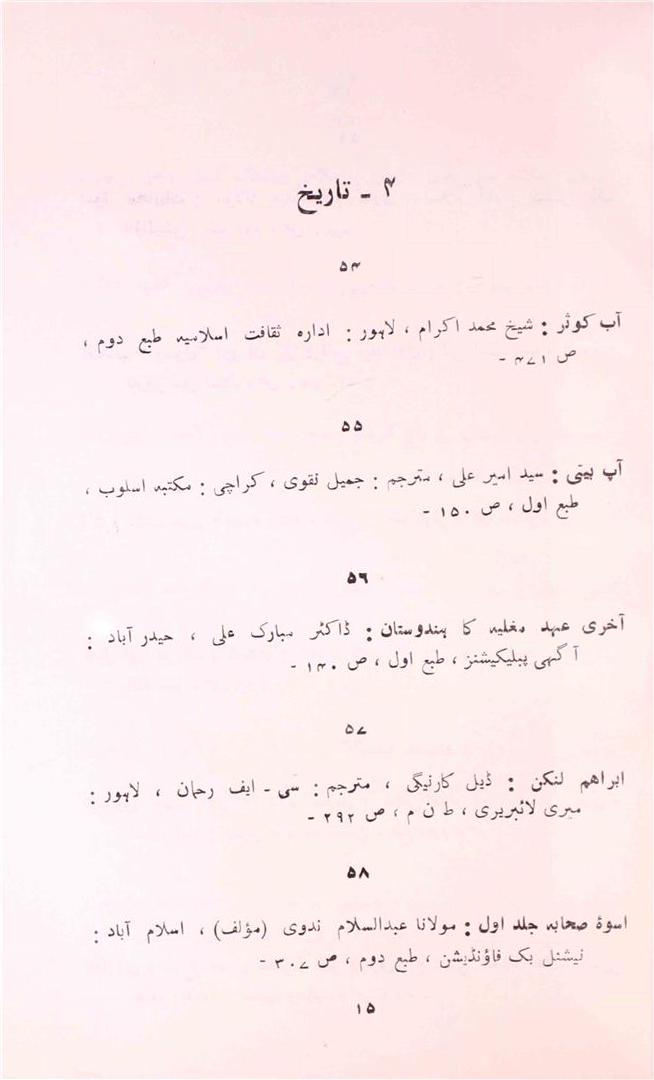 ۴ - تاریخ
۵۴
آب کوثر : شیخ محمد اکرام ، لاہور : ادارہ ثقافت اسلامیہ طبع دوم ،
ص ۴۷۱ -
۵۵
آپ بیتی : سید امیر علی ، مترجم : جمیل نقوی ، کراچی : مکتبہ اسلوب ،
طبع اول ، ص ۱۵۰ -
۵۶
آخری عہد مغلیہ کا ہندوستان : ڈاکٹر مبارک علی ، حیدر آباد :
آگہی پبلیکیشنز ، طبع اول ، ص ۱۴۰ -
۵۷
ابراهم لنکن : ڈیل کارنیگی ، مترجم : سی - ایف رحمان ، لاہور :
میری لائبریری ، ط ن م ، ص ۲۹۲ -
۵۸
اسوۂ صحابہ جلد اول : مولانا عبدالسلام ندوی (مؤلف) ، اسلام آباد :
نیشنل بک فاؤنڈیشن ، طبع دوم ، ص ۳۰۷ -
۱۵